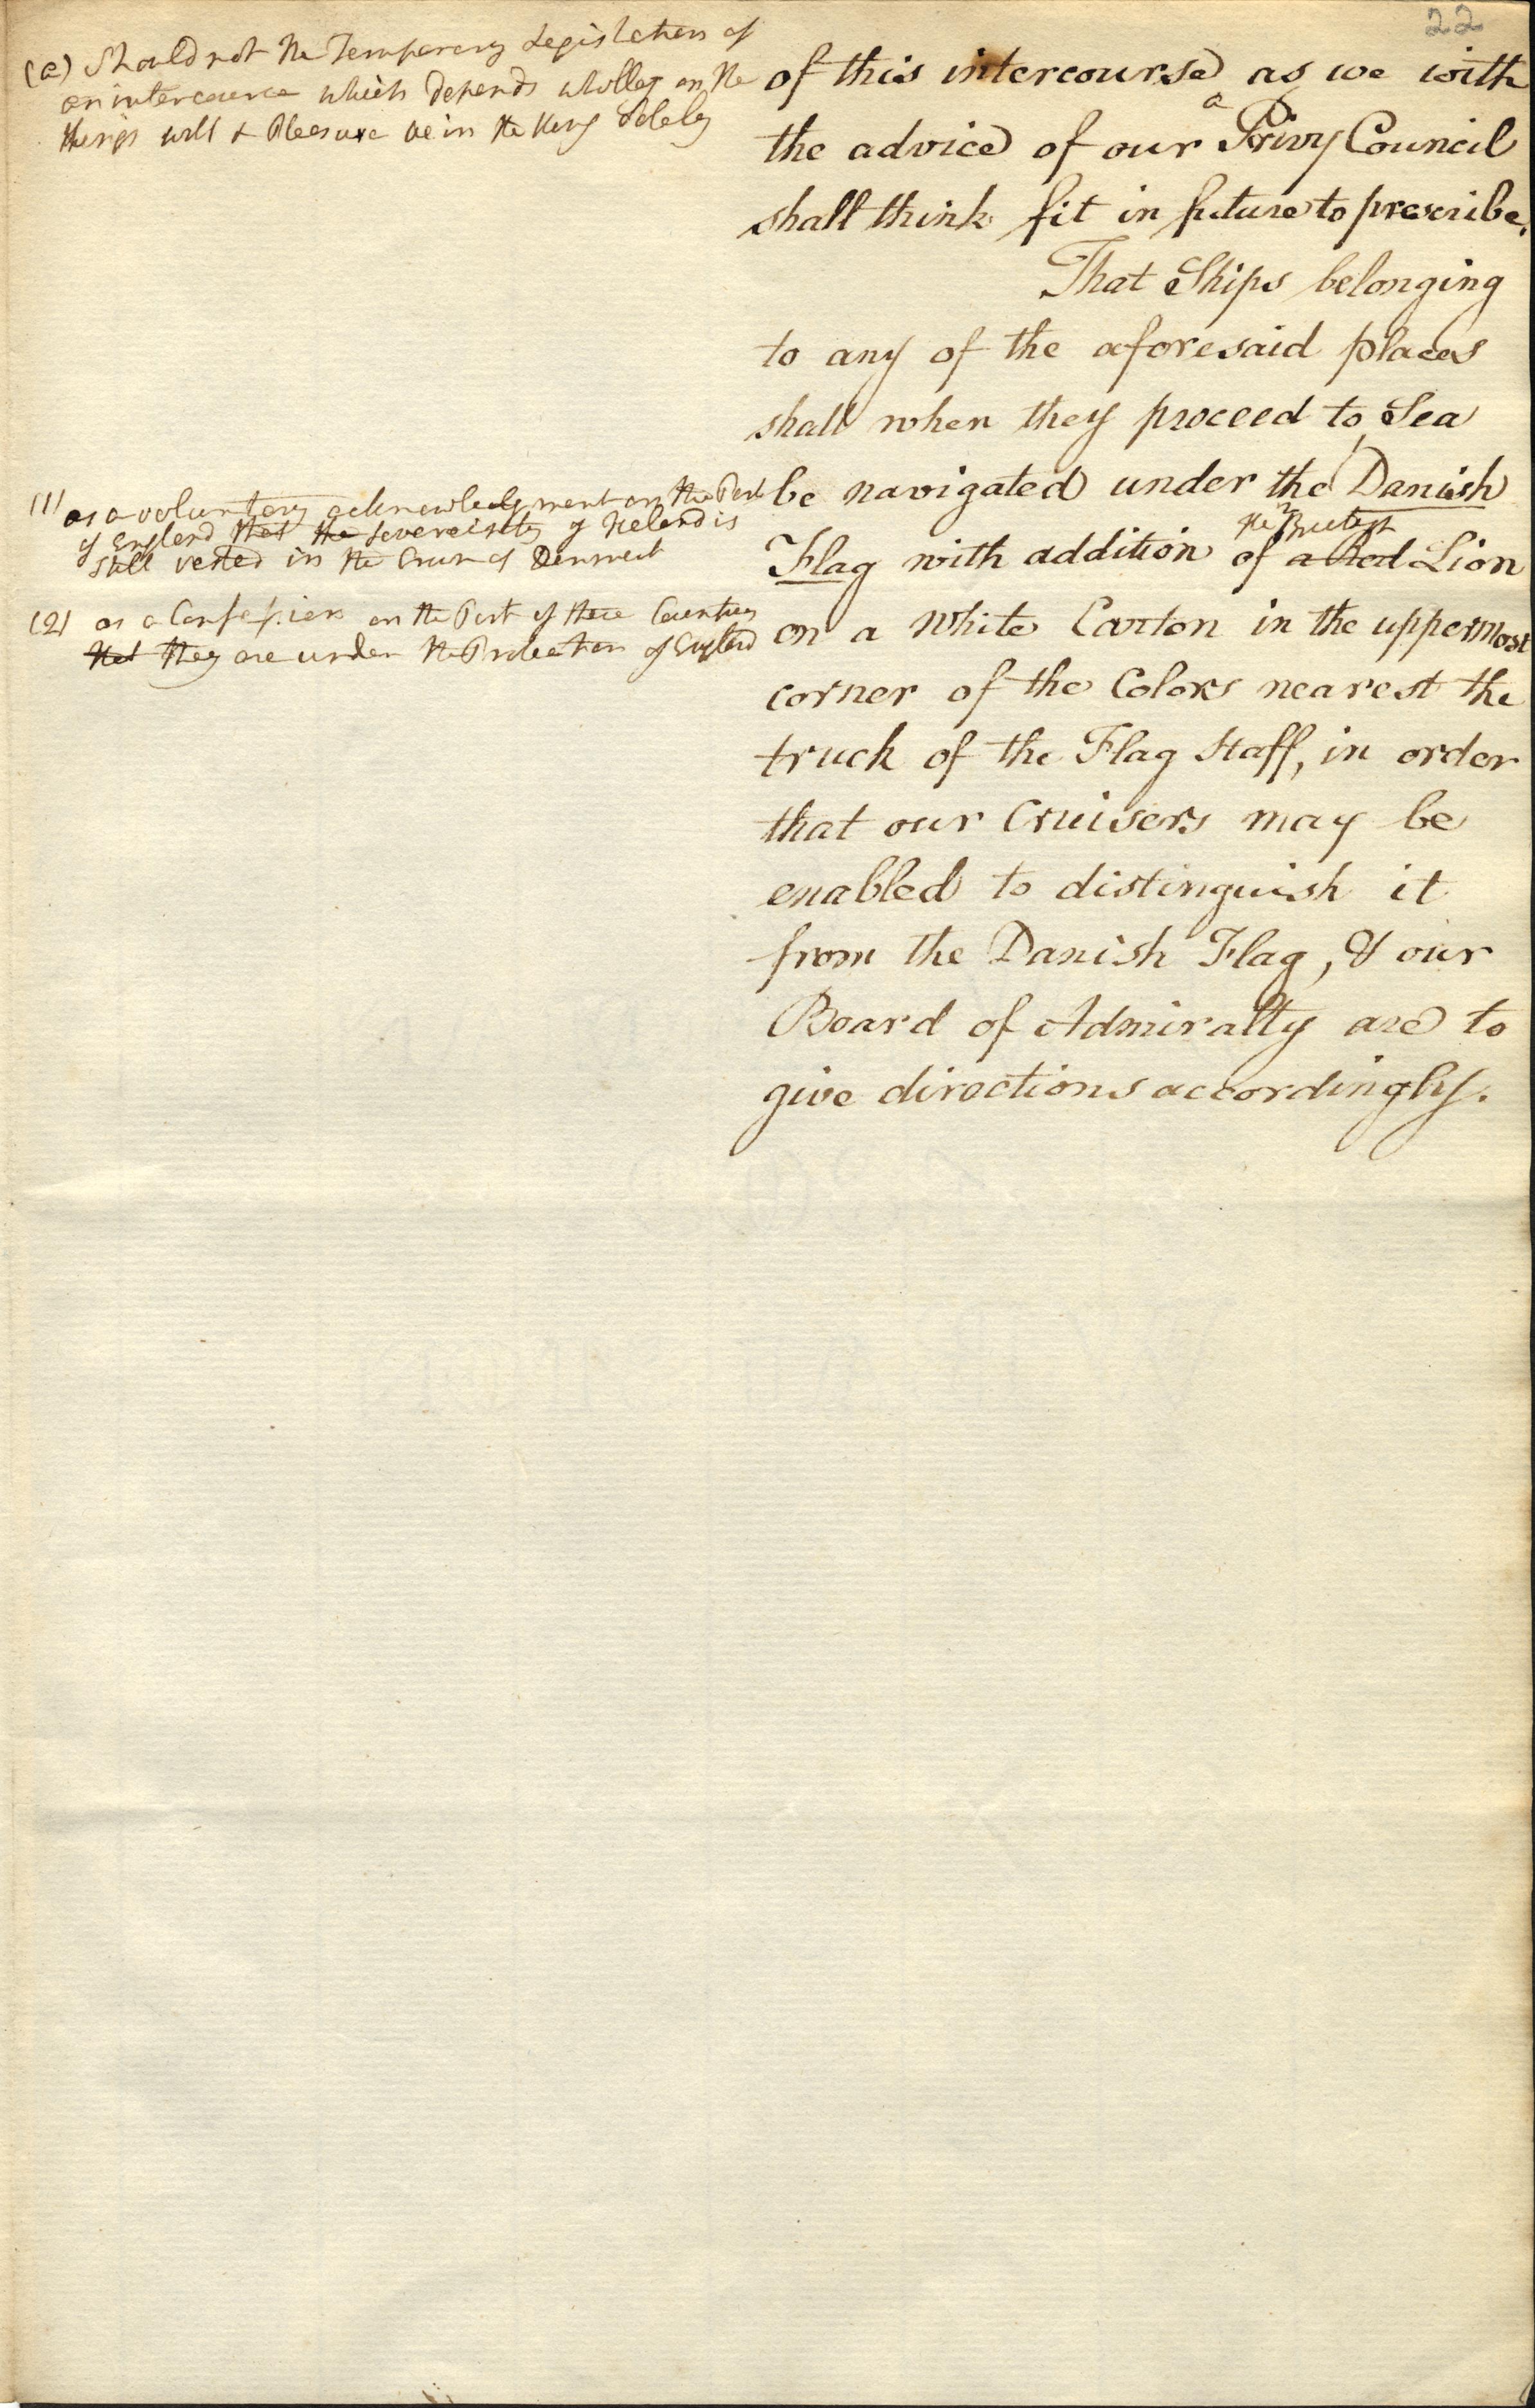 22
(a) Should not the Temporary Legislation of
an intercource which depends wholley on the
things will & Pleasure be in the King Solely
of this intercourse as we with
a
the advice of our Privy Council
shall think fit in future to prescribe.
That Ships belonging
to any of the aforesaid places
shall when they proceed to Sea
1
be navigated under the Danish
the 2 British
Flag with addition of a Red Lion
on a White Carton in the uppermost
corner of the Colors nearest the
truck of the Flag Staff, in order
that our Cruisers may be
enabled to distinguish it
from the Danish Flag, & our
Board of Admiralty are to
give directions accordingly.
(1) as a voluntary acknowledgment on the Part
of England that the Sovereinty of Iceland is
still vested in the Crown of Denmark
(2) as a Confession on the Part of these Countrey
that they are under the Protection of England